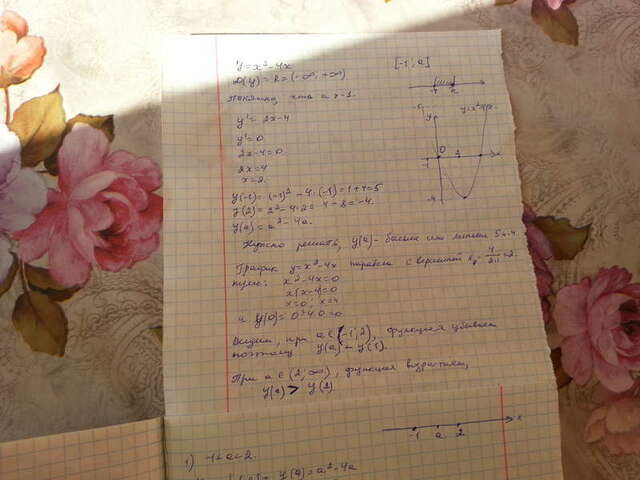 y = x² - 4x [-1, a]
D(y) = R = (-∞; +∞)
Понятно, что a > -1.
y' = 2x - 4
y' = 0
2x - 4 = 0
2x = 4
x = 2.
y(-1) = (-1)² - 4·(-1) = 1 + 4 = 5
y(2) = 2² - 4·2 = 4 - 8 = -4.
y(a) = a² - 4a.
Нужно решить, y(a) - больше или меньше 5 и -4.
График y = x² - 4x парабола с вершиной x₀ = 4/2·1 = 2.
нули: x² - 4x = 0
x(x-4) = 0
x = 0; x = 4
и y(0) = 0² - 4·0 = 0
Видим, при a ∈ (-1, 2), функция убывает
поэтому y(a) <
При a ∈ (2, ∞), функция возрастает,
y(a) > y(2)
-1 a 2 x
1) -1 < a < 2.
y(a) = a² - 4a
-1 a
y y = x² - 4x
-1 0 2 x
-4